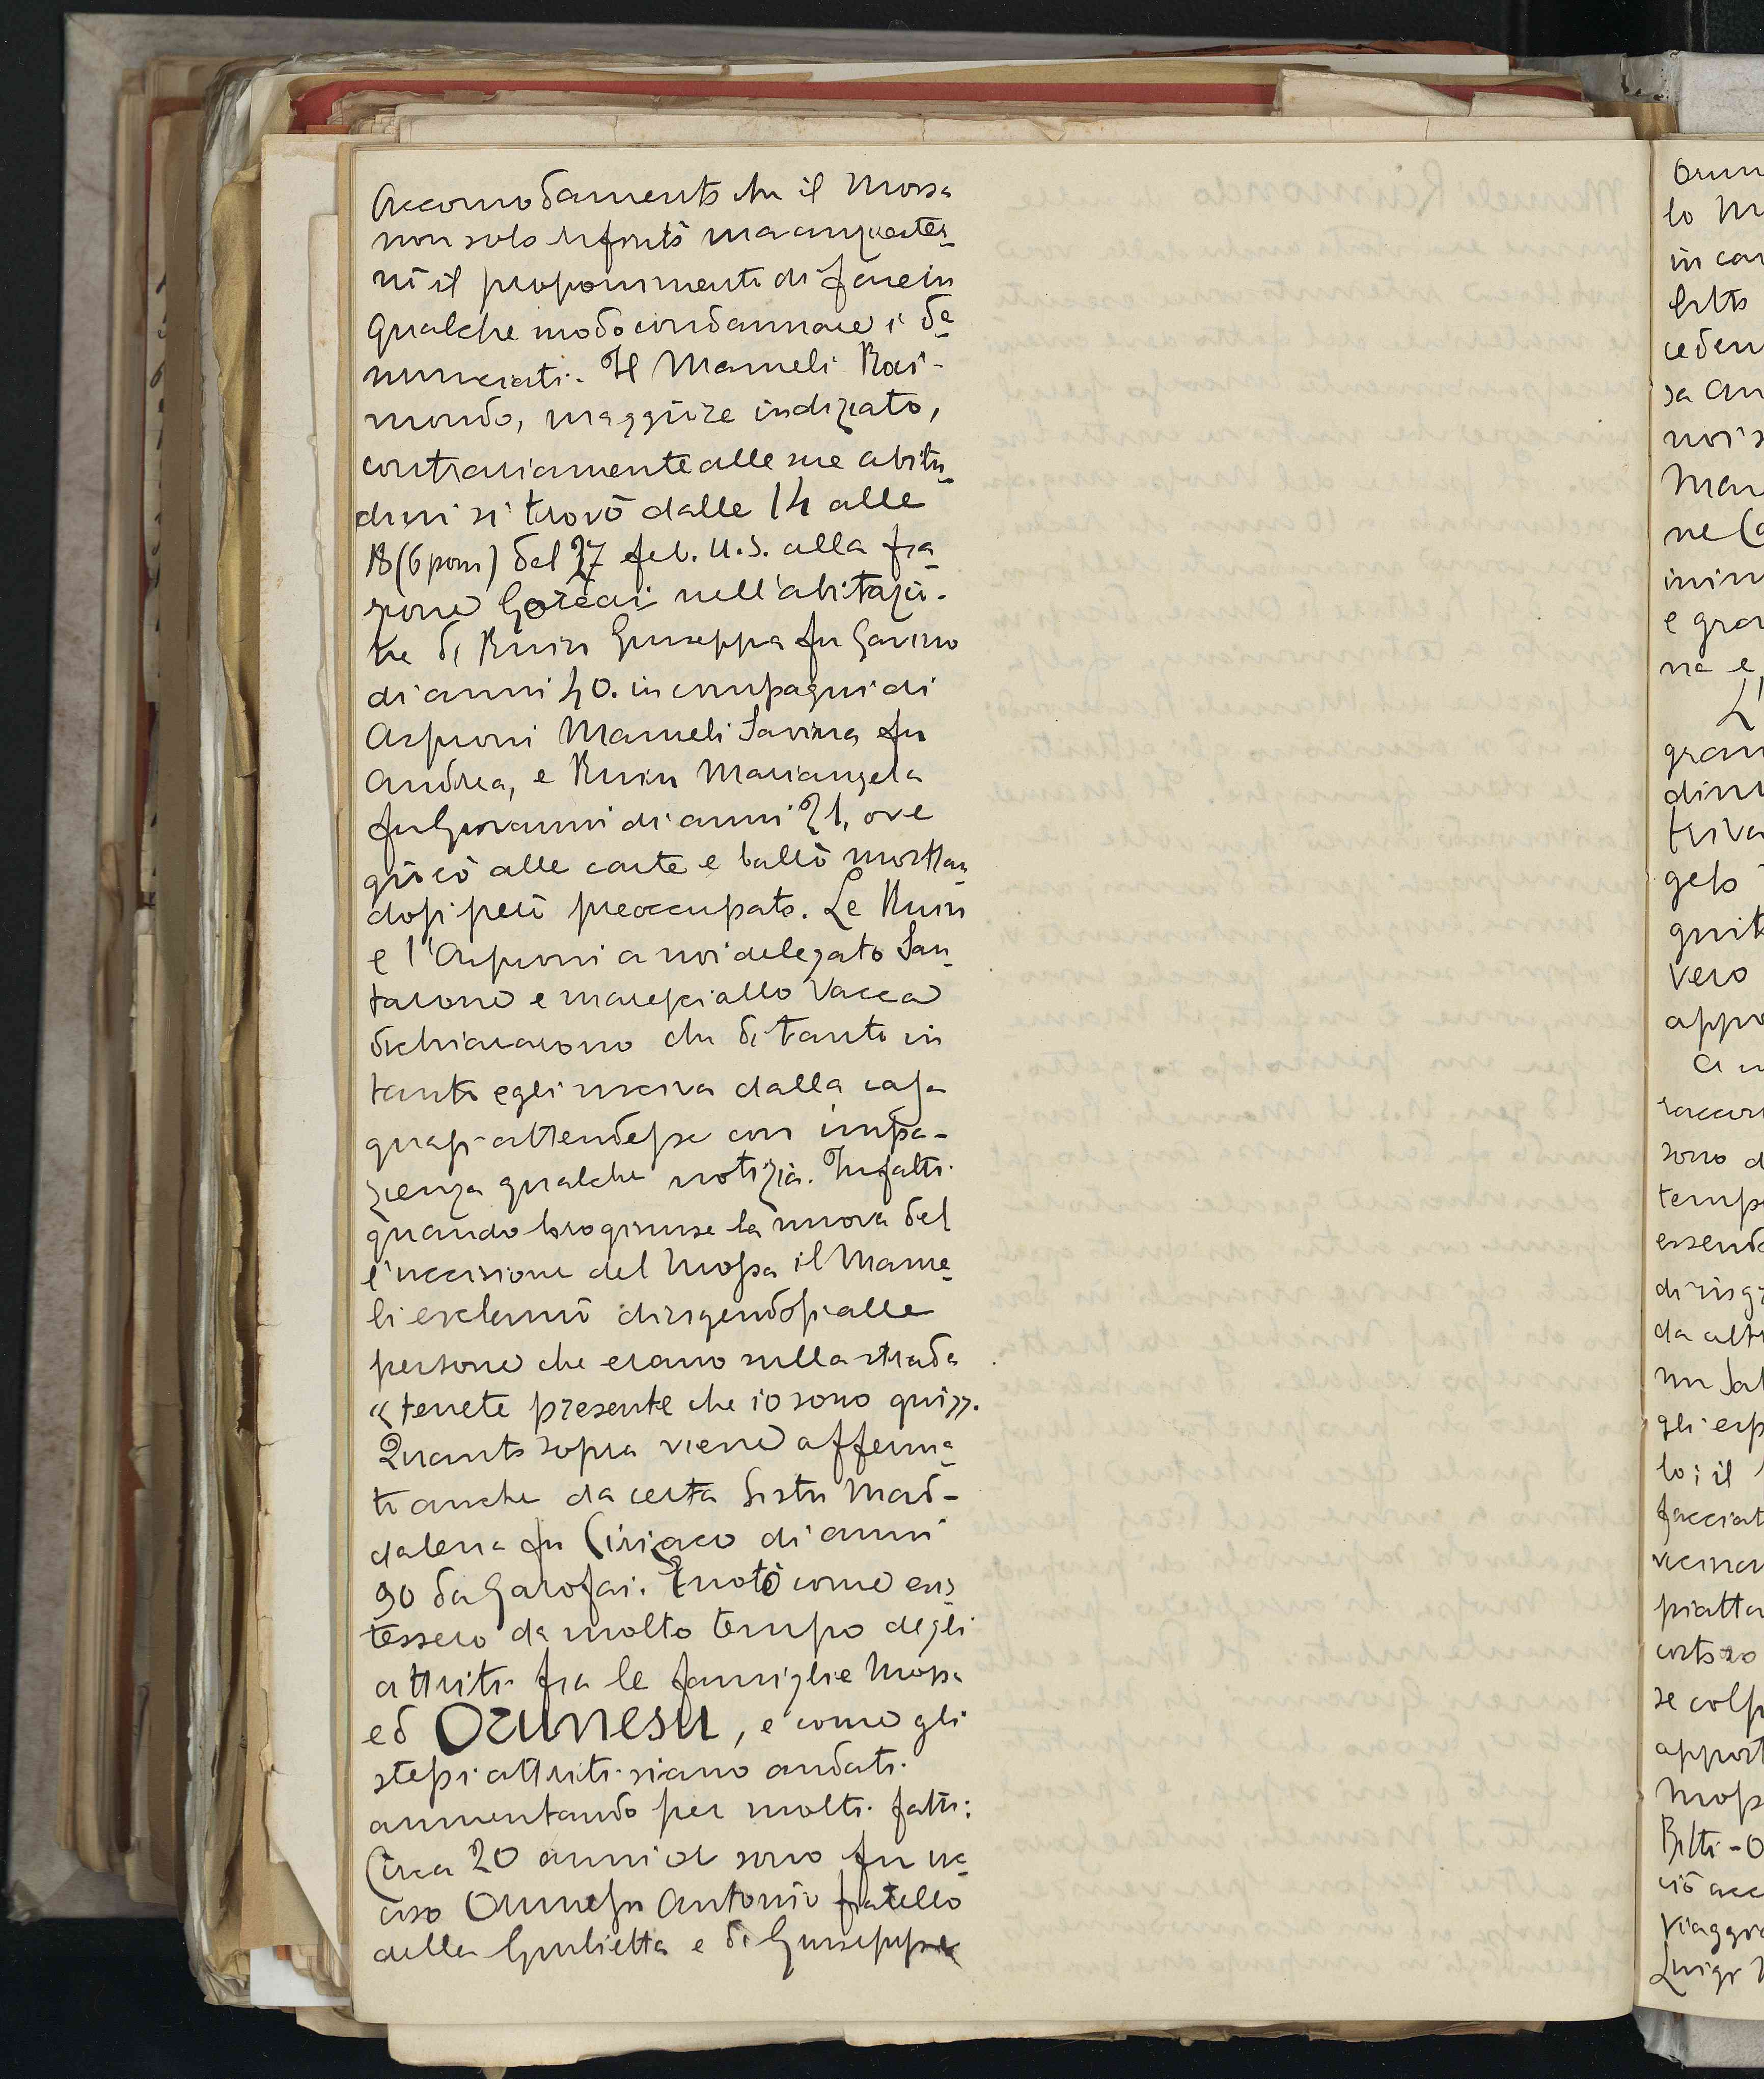 Accomodamento che il Mossa
non solo rifiutò ma anzi ester¬
nò il proponimento di fare in
qualche modo condannare i de
nunciati. Il Mameli Rai-
mondo, maggiore indiziato,
contrariamente alle sue abitu
dini si trovò dalle 14 alle
18 (6 pom) del 27 feb. u.s. alla fra
zione nell'abitazio-
ne di Ruiu Giuseppa fu Gavino
di anni 40. in compagni di
Asproni Mameli Savina fu
Andrea, e Ruiu Mariangela
fu Giovanni di anni 21, ove
giocò alle carte e ballò mostran
dosi però preoccupato. Le Ruiu
e l'Asproni a noi delegato San
tarone e maresciallo Vacca
dichiararono che di tanto in
tanto egli usciva dalla casa
quasi attendesse con impa-
zienza qualche notizia. Infatti
quando loro giunse la nuova del
l'uccisione del Mossa il Mame
li esclamò dirigendosi alle
persone che erano sulla strada
« tenete presente che io sono qui ».
Quanto sopra viene afferma
to anche da certa Sistu Mad-
dalena fu Ciriaco di anni
90 da Garofai. È noto come esis
tessero da molto tempo degli
attriti fra le famiglie Mossa
ed Orunesu, e come gli
stessi attriti siano andati
aumentando per molti fatti:
Circa 20 anni or sono fu uc
ciso Orunesu Antonio fratello
della Giulietta e di Giuseppe
lo
in
cedem
sa
noi
ne
e
na e
L'
gran
triva
vero
A
sono
da
gli
lo; il
se